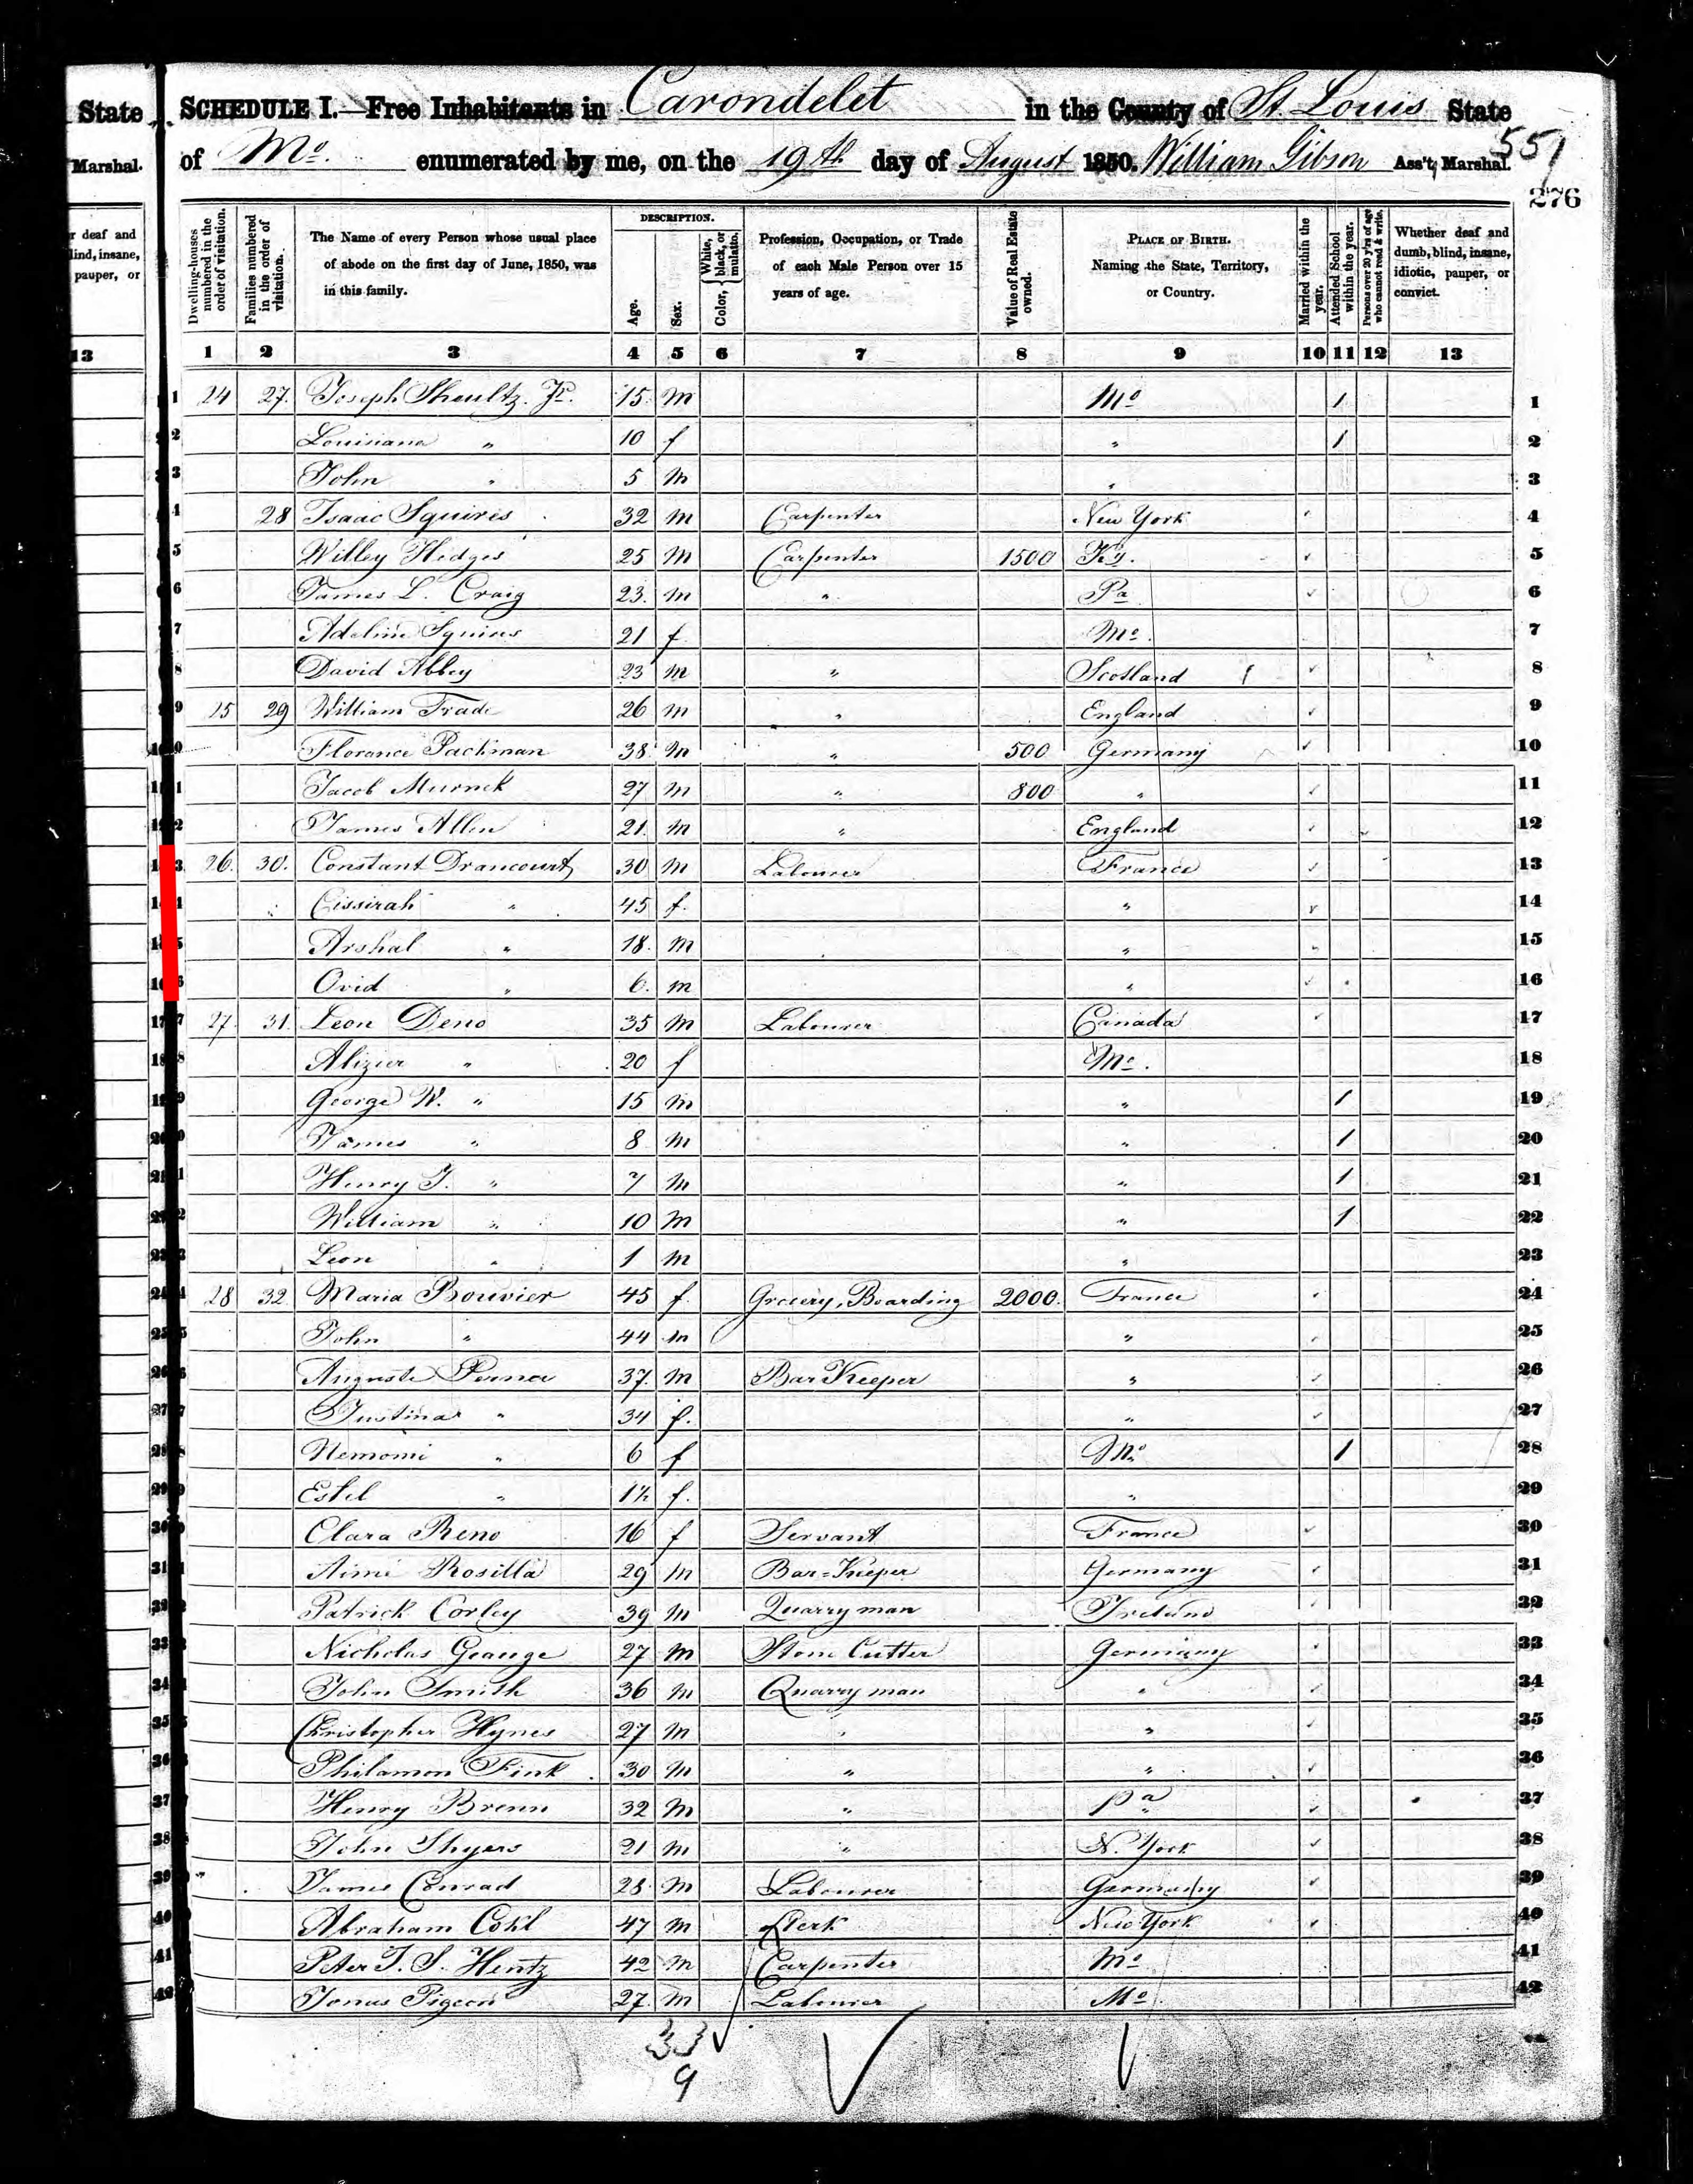 State
Marshal.
r deaf and
lind, insane,
pauper, or
13
SCHEDULE I.—Free Inhabitants in Carondelet in the County of St. Louis State
of Mo. enumerated by me, on the 19th day of August 1850. William Gibson Ass't Marshal.
551
276
Dwelling-houses numbered in the order of visitation.
Families numbered in the order of visitation.
The Name of every Person whose usual place of abode on the first day of June, 1850, was in this family.
DESCRIPTION.
Age.
Sex.
Color, White, black, or mulatto.
Profession, Occupation, or Trade of each Male Person over 15 years of age.
Value of Real Estate owned.
PLACE OF BIRTH. Naming the State, Territory, or Country.
Married within the year.
Attended School within the year.
Persons over 20 y'rs of age who cannot read & write.
Whether deaf and dumb, blind, insane, idiotic, pauper, or convict.
1 2 3 4 5 6 7 8 9 10 11 12 13
1 24 27. Joseph Shoultz. Jr. 15 m Mo 1 1
2 Louisiana " 10 f " 1 2
3 John " 5 m " 3
4 28 Isaac Squires 32 m Carpenter New York 4
5 Willey Hedges 25 m Carpenter 1500 Ky. 5
6 James L. Craig 23. m " Pa 6
7 Adeline Squires 21 f Mo. 7
8 David Abbey 23 m " Scotland 8
9 15 29 William Trade 26 m " England 9
10 Florence Pachman 38 m " 500 Germany 10
11 Jacob 27 m " 800 " 11
12 James Allen 21. m " England 12
13 26. 30. Constant Drancourt 30 m Labourer France 13
14 Cissirah " 45 f. " 14
15 Arshal " 18. m " 15
16 Ovid " 6. m " 16
17 27. 31. Leon Deno 35 m Labourer Canada 17
18 Alizier " 20 f Mo. 18
19 George W. " 15 m " 1 19
20 James " 8 m " 1 20
21 Henry J. " 7 m " 1 21
22 William " 10 m " 1 22
23 Leon " 1 m " 23
24 28 32 Maria Bouvier 45 f. Grocery, Boarding 2000. France 24
25 John " 44 m " 25
26 Auguste 37. m Bar Keeper " 26
27 Justina " 34 f. " 27
28 Nemomi " 6 f Mo. 1 28
29 Estel " 1½ f. " 29
30 Clara Reno 16 f Servant France 30
31 Aimi Rosilla 29 m Bar=Keeper Germany 31
32 Patrick Corley 39 m Quarry man Ireland 32
33 Nicholas Geauge 27 m Stone Cutter Germany 33
34 John Smith 36 m Quarry man " 34
35 Christopher Hynes 27 m " " 35
36 Philamon Fink 30 m " " 36
37 Henry Brenn 32 m " Pa 37
38 John Shyers 21 m " N. York 38
39 James Conrad 28. m Labourer Germany 39
40 Abraham Cokl 47 m Clerk New York 40
41 Peter J. S. Hentz 42 m Carpenter Mo 41
42 Jonas Pigeon 27. m Labourer Mo. 42
33
9